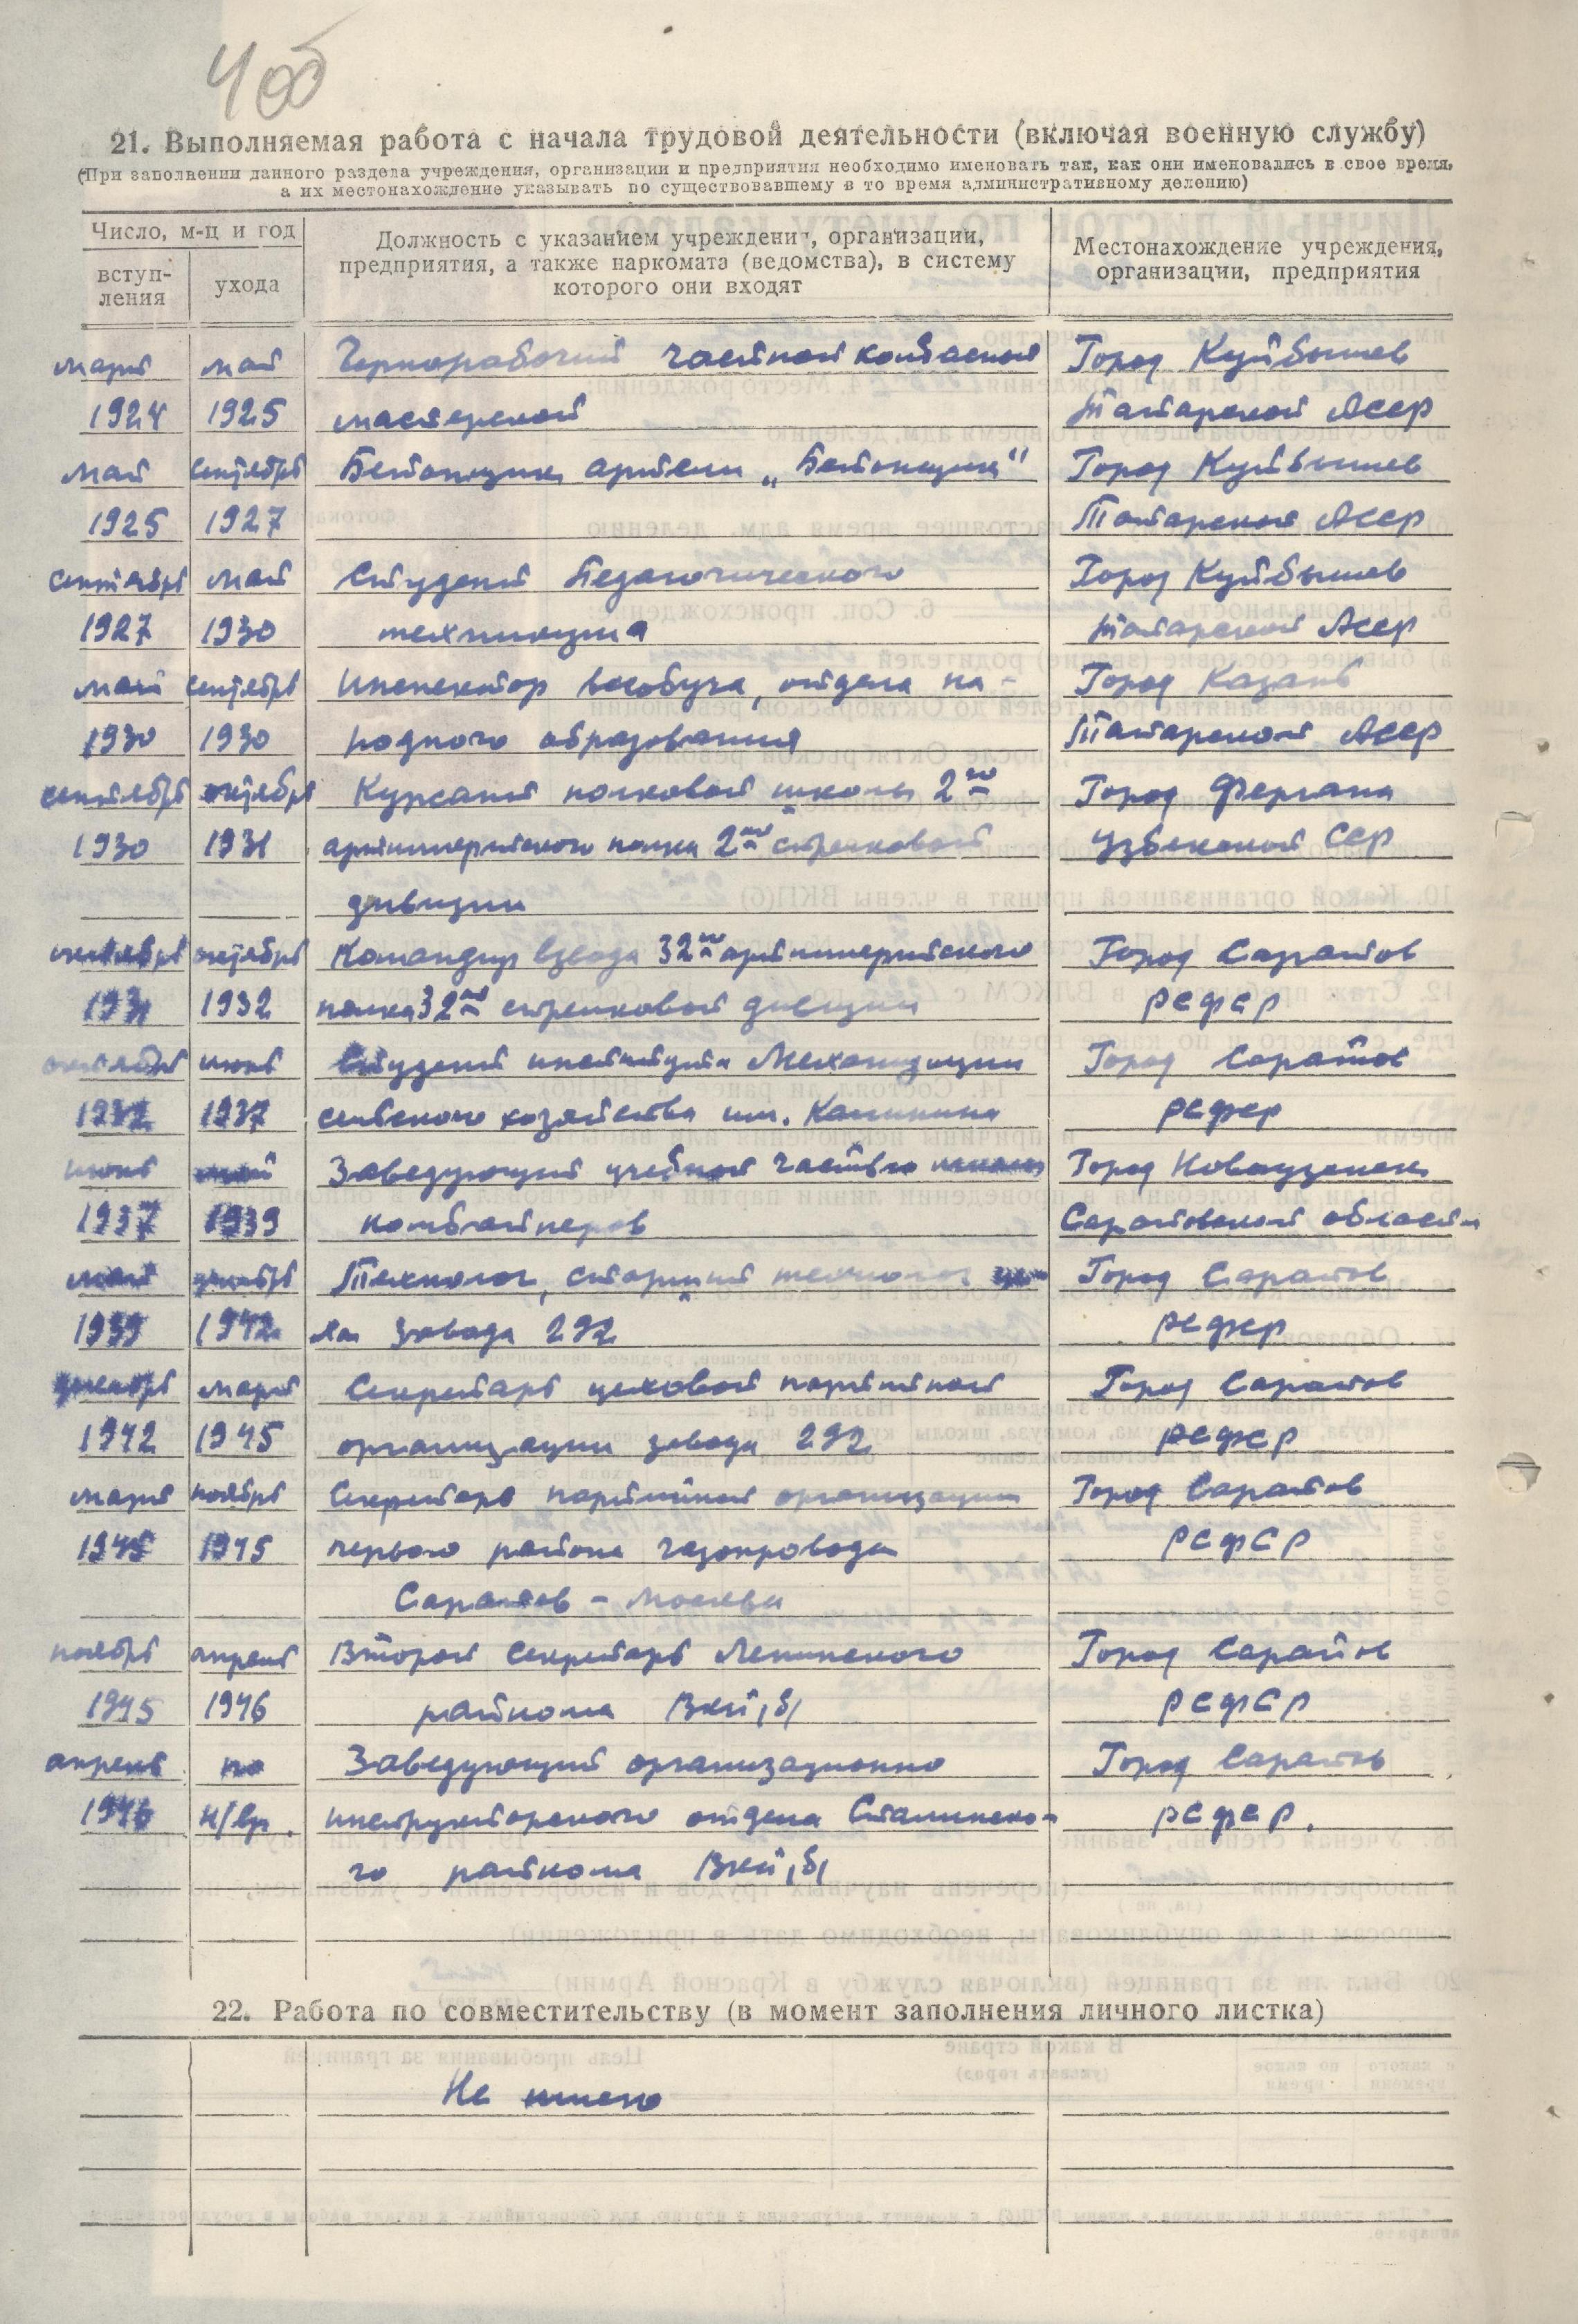 4 об
21. Выполняемая работа с начала трудовой деятельности (включая военную службу)
(При заполнении данного раздела учреждения, организации и предприятия необходимо именовать так, как они именовались в свое время,
а их местонахождение указывать по существовавшему в то время административному делению)
Число, м-ц и год
вступ-
ления
ухода
Должность с указанием учреждения, организации,
предприятия, а также наркомата (ведомства), в систему
которого они входят
Местонахождение учреждения,
организации, предприятия
март май Чернорабочий частной колбасной Город Куйбышев
1924 1925 мастерской Татарской АССР
май сентябрь Бетонщик артели „Бетонщик" Город Куйбышев
1925 1927 Татарской АССР
сентябрь май Студент Педагогического Город Куйбышев
1927 1930 техникума Татарской АССР
май сентябрь Инспектор всеобуча, отдела на- Город Казань
1930 1930 родного образования Татарской АССР
сентябрь октябрь Курсант полковой школы 2го Город Фергана
1930 1931 артиллерийского полка 2ой стрелковой Узбекской ССР
дивизии
октябрь октябрь Командир взвода 32го артиллерийского Город Саратов
1931 1932 полка 32ой стрелковой дивизии РСФСР
октябрь июнь Студент института Механизации Город Саратов
1932 1937 сельского хозяйства им. Калинина РСФСР
июнь май Заведующий учебной частью школы Город Новоузенск
1937 1939 комбайнеров Саратовской области
май декабрь Технолог, старший технолог це- Город Саратов
1939 1942 ха завода 292 РСФСР
декабрь март Секретарь цеховой партийной Город Саратов
1942 1945 организации завода 292 РСФСР
март ноябрь Секретарь партийной организации Город Саратов
1945 1945 первого района газопровода РСФСР
Саратов - Москва
ноябрь апрель Второй секретарь Ленинского Город Саратов
1945 1946 райкома ВКП(б) РСФСР
апрель по Заведующий организационно Город Саратов
1946 н/вр. инструкторского отдела Сталинско- РСФСР.
го райкома ВКП(б)
22. Работа по совместительству (в момент заполнения личного листка)
Не имею